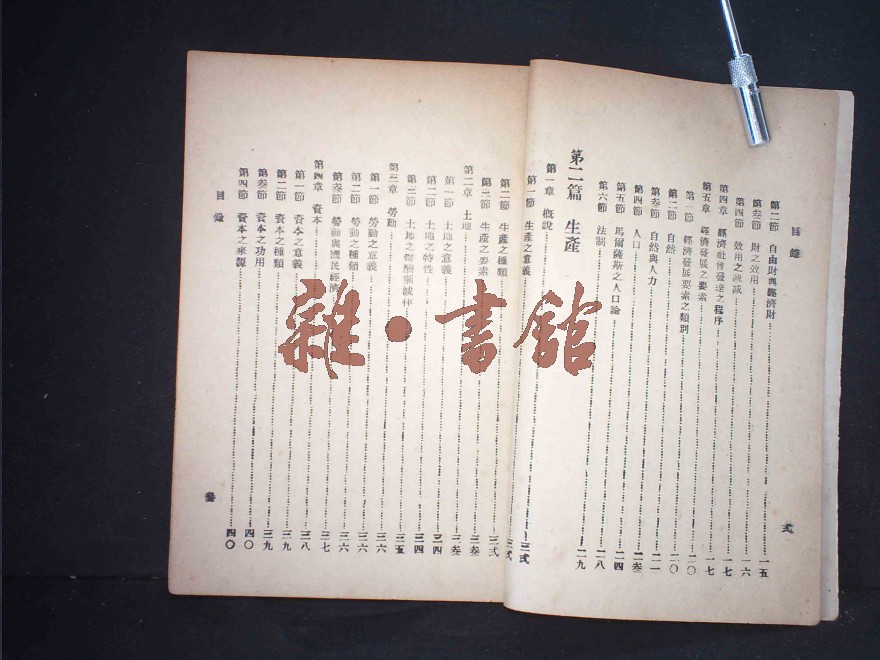 目錄
弍
第二節 自由財與經濟財 一五
第叁節 財之效用 一六
第四節 效用之遞減 一七
第四章 經濟社會發達之程序 一七
第五章 經濟發展之要素 二〇
第一節 經濟發展要素之類別 二〇
第二節 自然 二一
第叁節 自然與人力 二叁
第四節 人口 二四
第五節 馬爾薩斯之人口論 二八
第六節 法制 二九
第二篇 生產
第一章 概說 三弍
第一節 生產之意義 三弍
第二節 生產之種類 三弍
第三節 生產之要素 三叁
第二章 土地 三叁
第一節 土地之意義 三四
第二節 土地之特性 三四
第三節 土地之報酬漸減律 三五
第三章 勞動 三六
第一節 勞動之意義 三六
第二節 勞動之種類 三六
第叁節 勞動與國民經濟 三七
第四章 資本 三八
第一節 資本之意義 三九
第二節 資本之種類 三九
第叁節 資本之功用 四〇
第四節 資本之來源 四〇
目錄
叁
雜·書館